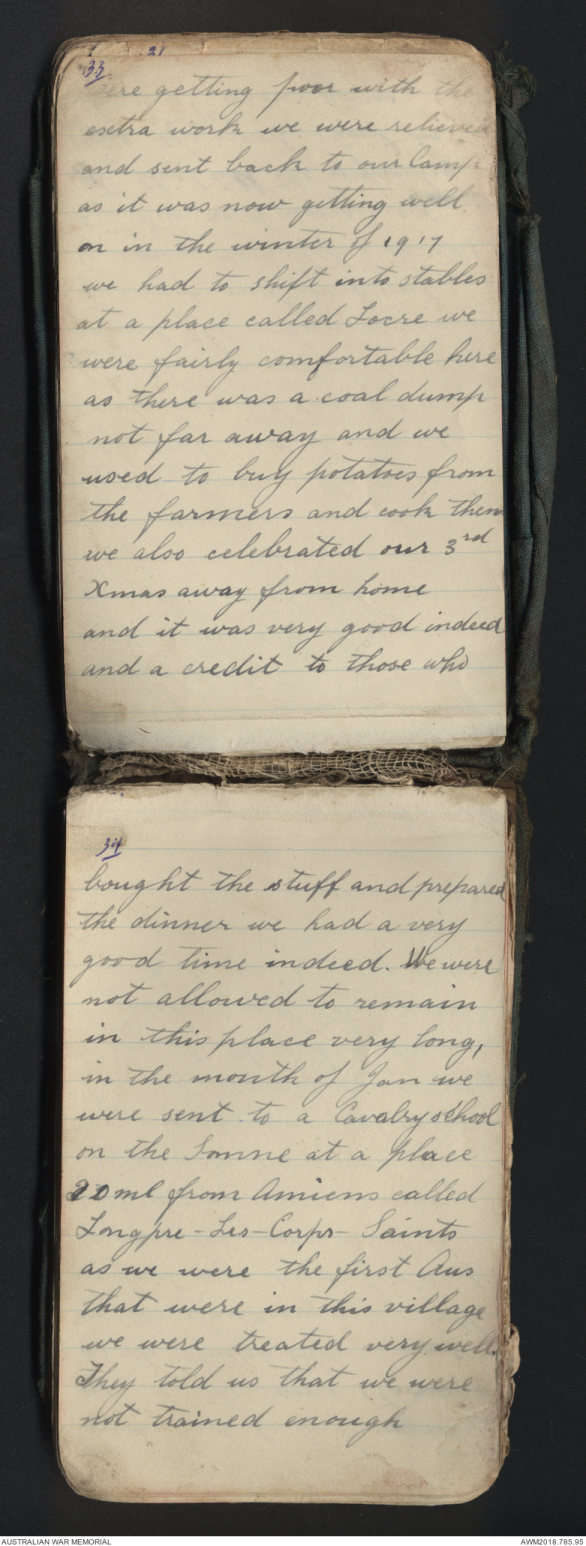 33
were getting poor with the
extra work we were relieved
and sent back to our Camp
as it was now getting well
on in the winter of 1917
we had to shift into stables
at a place called Locre we
were fairly comfortable here
as there was a coal dump
not far away and we
used to buy potatoes from
the farmers and cook them
we also celebrated our 3rd
Xmas away from home
and it was very good indeed
and a credit to those who
34
bought the stuff and prepared
the dinner we had a very
good time indeed. We were
not allowed to remain
in this place very long,
in the month of Jan we
were sent to a Cavalry school
on the Somne at a place
20 ml from Amiens called
Longpre-Les-Corps-Saints
as we were the first Aus
that were in this village
we were treated very well.
They told us that we were
not trained enough
AUSTRALIAN WAR MEMORIAL
AWM2018.785.95